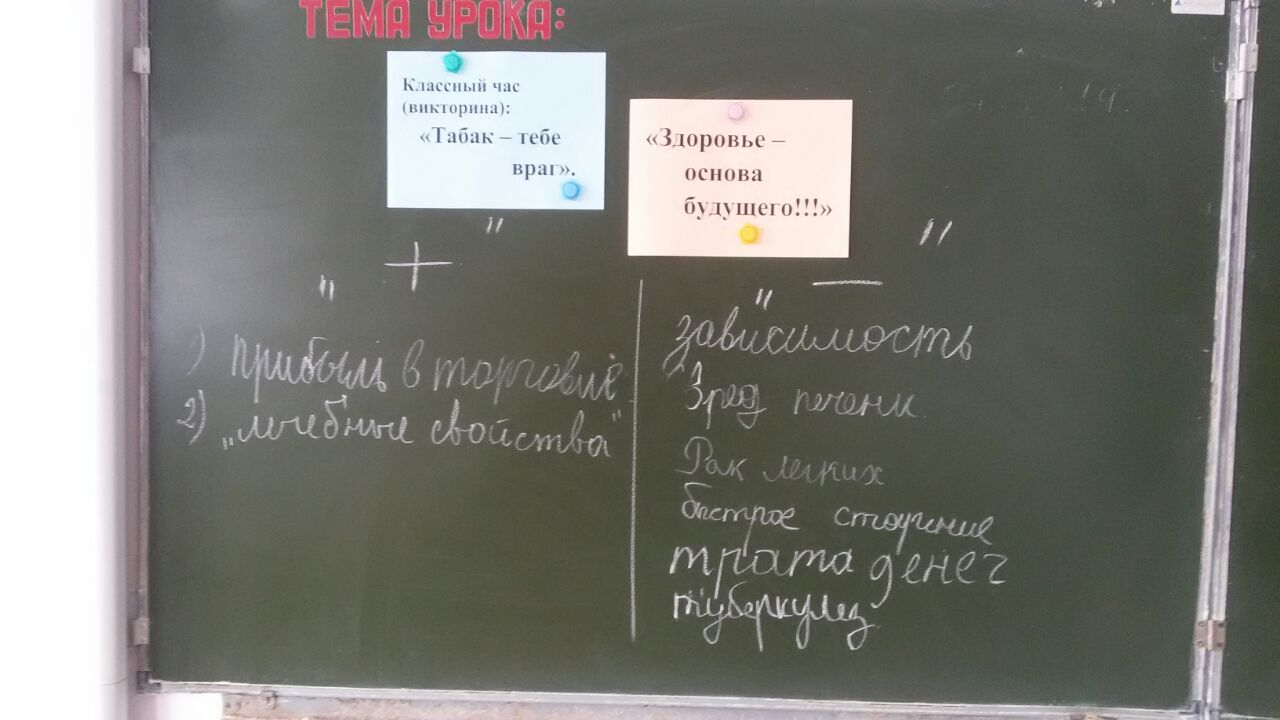 ТЕМА УРОКА:
Классный час
(викторина):
«Табак – тебе
враг».
«Здоровье –
основа
будущего!!!»
"+"
1) прибыль в торговле
2) „лечебные свойства"
"—"
зависимость
Вред печени.
Рак легких
быстрое старение
трата денег
туберкулез